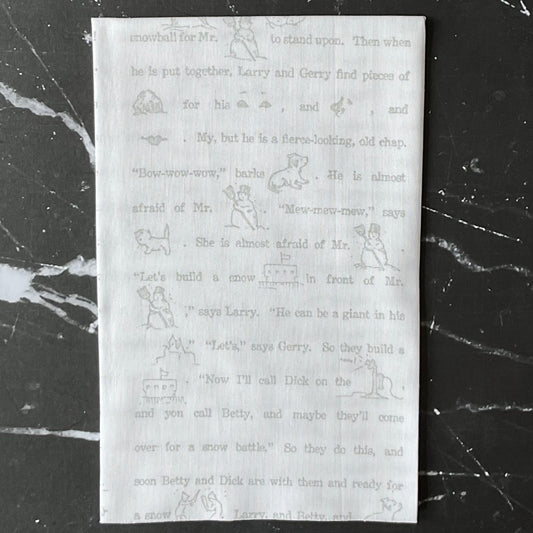 snowball for Mr. to stand upon. Then when
he is put together, Larry and Gerry find pieces of
for his , and , and
. My, but he is a fierce-looking, old chap.
"Bow-wow-wow," barks . He is almost
afraid of Mr. . "Mew-mew-mew," says
. She is almost afraid of Mr. .
"Let's build a snow in front of Mr.
," says Larry. "He can be a giant in his
." "Let's," says Gerry. So they build a
. "Now I'll call Dick on the ,
and you call Betty, and maybe they'll come
over for a snow battle." So they do this, and
soon Betty and Dick are with them and ready for
a snow . Larry, and Betty, and